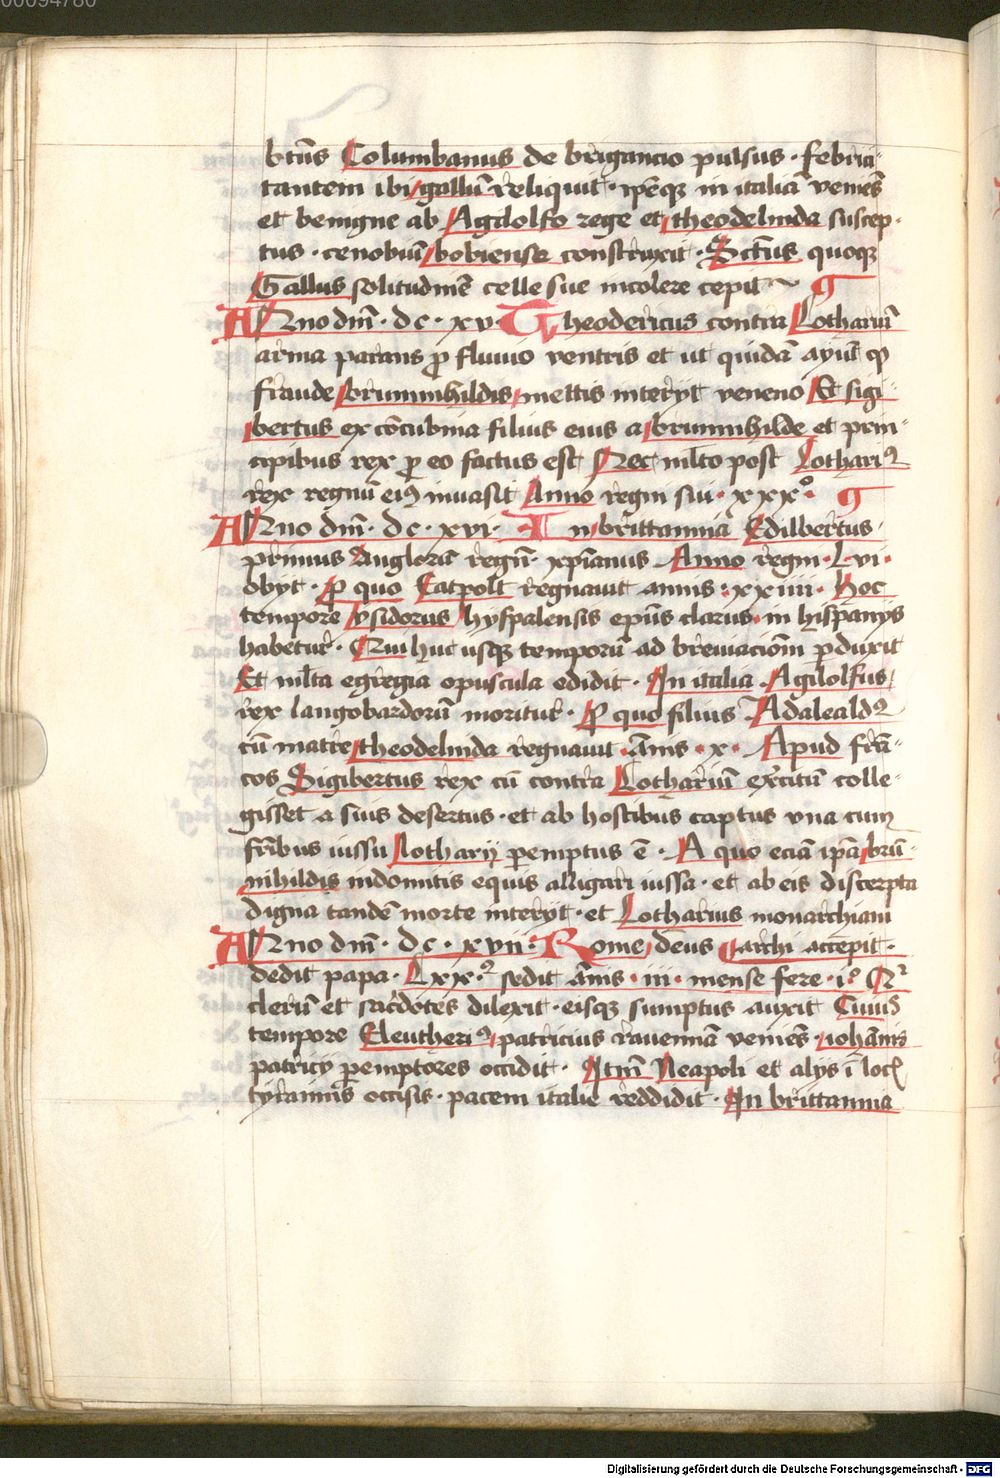 00094780
btūs Columbanus de brigancio pulsus · febrici-
tantem ibi gallū reliquit · ip̄eqꝫ in italiā veniēs
et benigne ab Agilolfo rege et theodelinda suscep-
tus · cenobiū bobiense construxit · Sctūs quoqꝫ
Gallus solitudinē celle sue incolere cepit
Anno dm̄ · dc · xv · Theodericus contra Lothariū
arma parans ꝓ fluuio ventris et ut quidā aiūt
fraude brunnihildis mettis interijt veneno Et sigi-
bertus ex cōcubina filius eius a brunnihilde et prin-
cipibus rex ꝓ eo factus est Nec ml̄to post Lothariꝰ
rex regnū eiꝰ inuasit Anno regni sui · xxxº ·
Anno dm̄ · dc · xvi · In brittannia Edilbertus ·
primus Anglorū regū xp̄ianus Anno regni · Lvi ·
obijt · Ꝓ quo Catpolt regnauit annis · xxiiii · Hoc
tempore ysidorus hyspalensis ep̄us clarus in hispanijs
habetur · Qui huc usqꝫ temporū ad breuiaciōm ꝓduxit
Et ml̄ta egregia opuscula edidit · In italia Agilolfus
rex langobardorū moritur · Ꝓ quo filius Adalealdꝰ
cū matre theodelinda regnauit Annis · x · Apud frā-
cos Sigibertus rex cū contra Lothariū exercitū colle-
gisset a suis desertus · et ab hostibus captus vna cum
frībus iussu lotharij ꝑemptus ē · A quo eciā ip̄a brū-
nihildis indomitis equis alligari iussa · et ab eis discerpta
digna tandē morte interijt · et Lotharius monarchiam
Anno dm̄ · dc · xvii · Rome deus archi accepit ·
dedit papa · Lxx · ꝰ sedit Annis · iii · mense fere · iº
clerū et sacerdotes dilexit · eisqꝫ sumptus auxit
tempore Eleutheriꝰ patricius rauennā veniēs iohānis
patricij ꝑemptores occidit · Neapoli et alijs ī locꝭ
tyrannis occisis · pacem italie reddidit · In brittannia
Digitalisierung gefördert durch die Deutsche Forschungsgemeinschaft - DFG